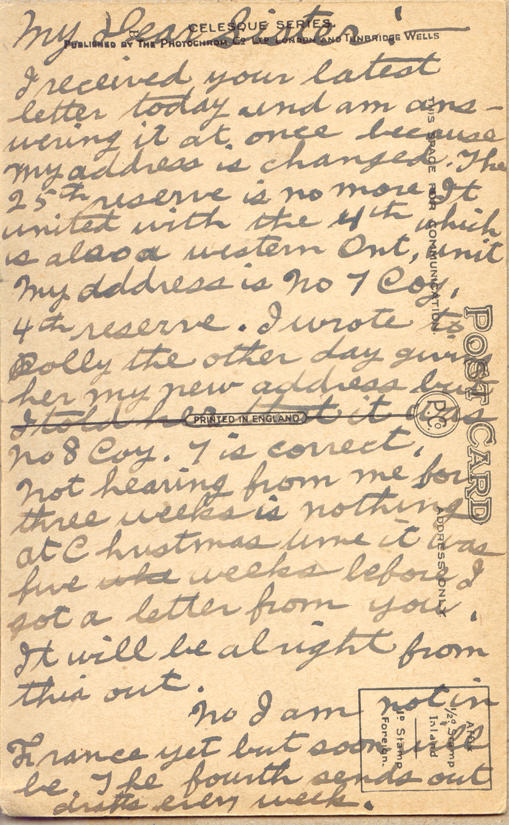 My Dear Sister :
CELESQUE SERIES.
PUBLISHED BY THE PHOTOCHROM Co LTD LONDON AND TUNBRIDGE WELLS
I received your latest
letter today and am ans-
wering it at once because
my address is changed. The
25th reserve is no more. It
united with the 4th which
is also a western Ont, unit
My address is No 7 Coy,
4th reserve. I wrote to
Polly the other day giving
her my new address but
I told her that it was
PRINTED IN ENGLAND
No 8 Coy. 7 is correct.
Not hearing from me for
three weeks is nothing
at Christmas time it was
five weeks before I
got a letter from you.
It will be alright from
this out.
No I am not in
France yet but soon will
be. The fourth sends out
drafts every week.
THIS SPACE FOR COMMUNICATION.
POST CARD
P.Co
ADDRESS ONLY
Affix
½D Stamp
Inland
1D Stamp
Foreign.